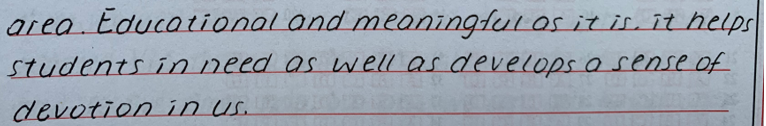 area. Educational and meaningful as it is, it helps
students in need as well as develops a sense of
devotion in us.